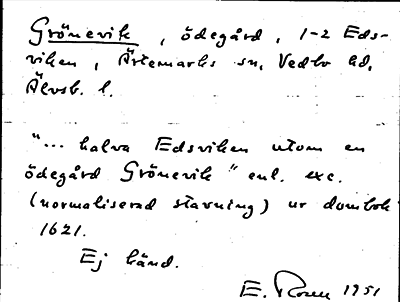 Grönevik, ödegård, 1-2 Eds-
viken, Ärtemarks sn, Vedbo hd,
Älvsb. l.
"... halva Edsviken utom en
ödegård Grönevik" enl. exc.
(normaliserad stavning) ur dombok
1621.
Ej känd.
E. Rosen 1951